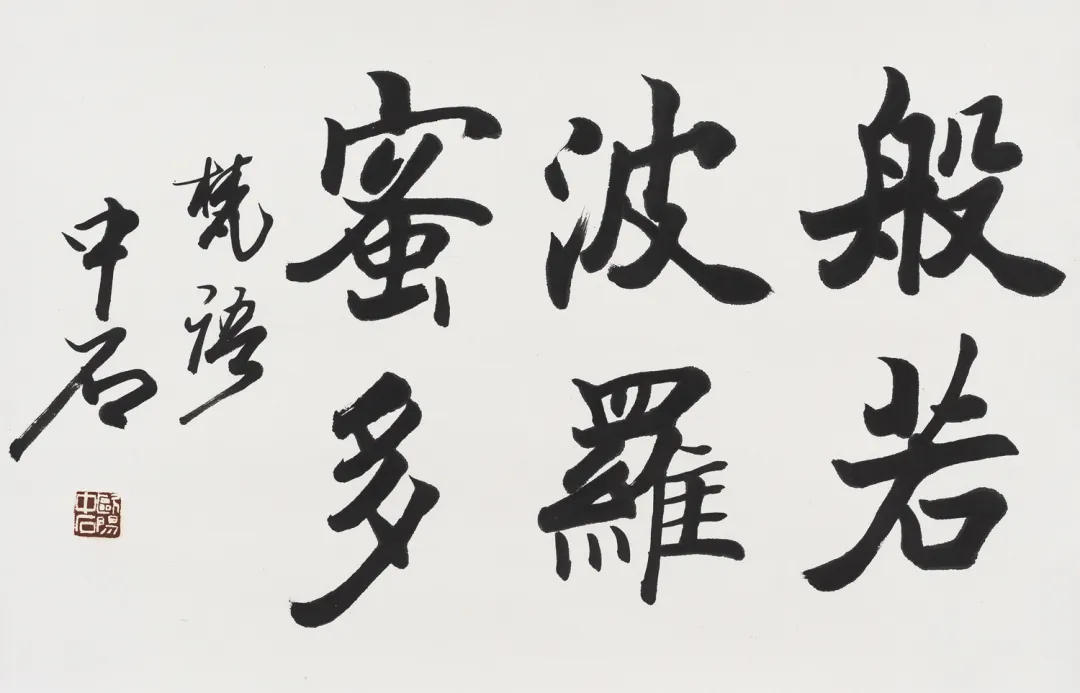 般若
波羅
蜜多
梵語
中石
歐陽
中石